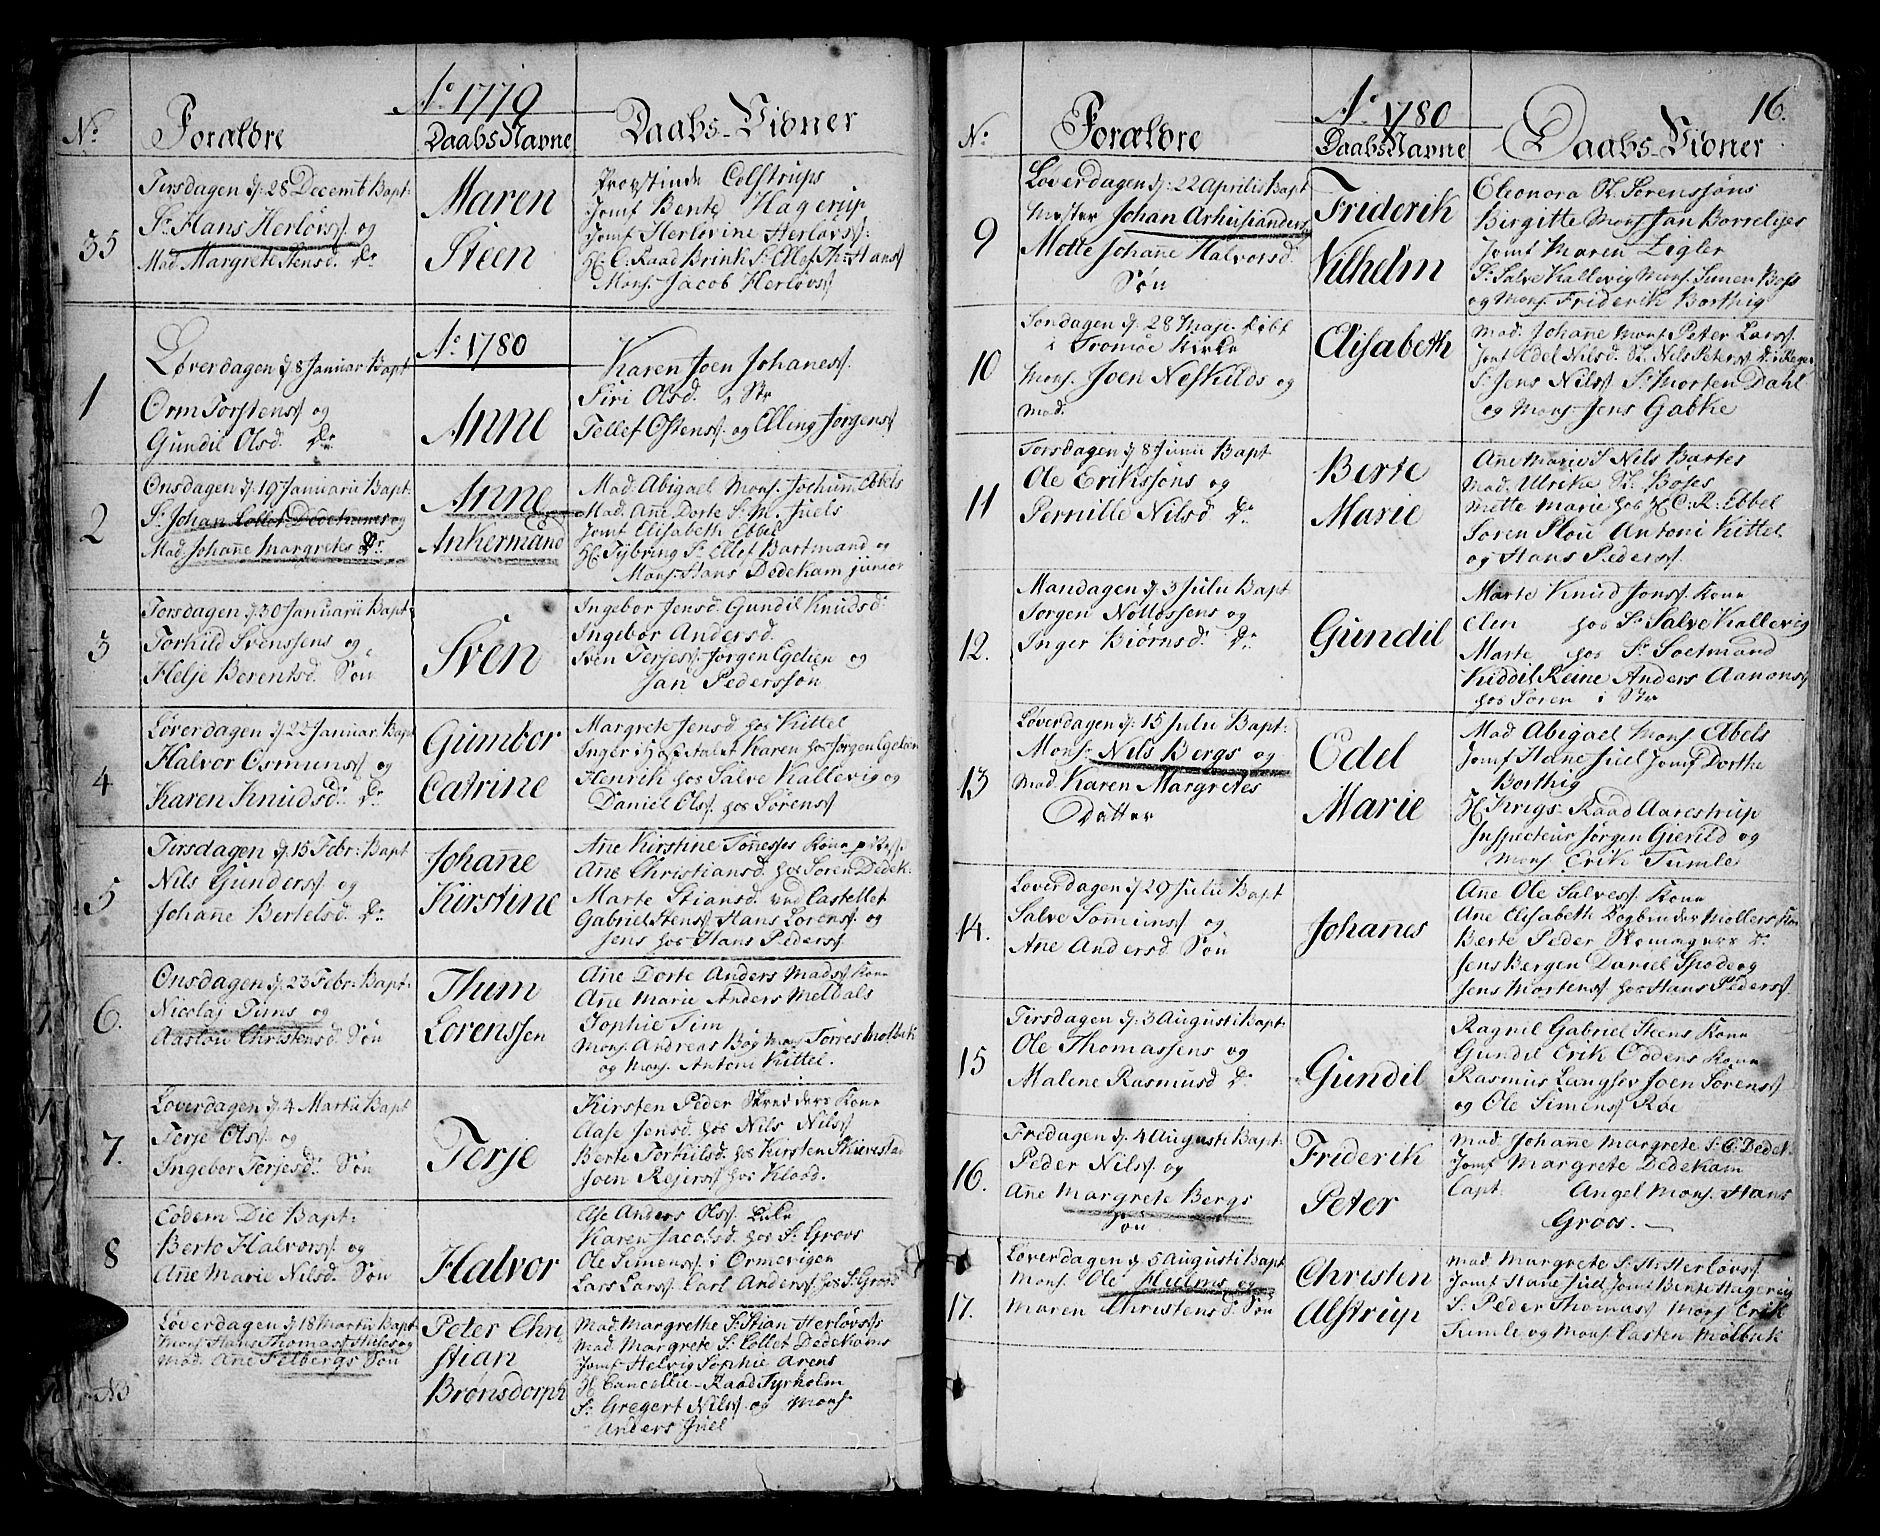 Ao 1779
No. Forældre DaabsNavne Daabs-Vidner
35
Tirsdagen d: 28 Decemb Bapt:
Sr. Hans Herløvs. og
Mad. Margrete Stensd. Dr
Maren
Steen
Provstinde Colstrups
Jomf Bente Hagerup
Jomf Herlovine Herløvs:
H: C. Raad Brink Sr Ellef Thr Hans.
Mons. Jacob Herløvs.
Ao 1780
1
Løverdagen d: 8 Januar Bapt
Orm Torstens. og
Gundil Olsd. Dr
Anne
Karen Joen Johanes.
Siri Olsd. i Str
Tellef Ostens. og Elling Jørgens.
2
Onsdagen d: 19 Januarii Bapt:
Sr. Johan Dedekams og
Mad. Johane Margretes Dr.
Anne
Ankermand
Mad. Abigael Mons. Jochum Ebbels
Mad. Ane Dorte Sr. Juels
Jomf Elisabeth Ebbel
H: Tybring Sr. Ellef Bartmand og
Mons. Hans Dedekam junior
3
Torsdagen d: 30 Januarii Bapt:
Torkild Svenssens og
Helje Berentsd. Søn
Sven
Ingebor Jensd. Gundil Knudsd.
Ingebor Andersd.
Sven Terjes. Jørgen Egelien og
Jan Pederssøn
4
Løverdagen d: 22 Januar. Bapt
Halvor Osmuns. og
Karen Knudsd. Dr
Gumbor
Catrine
Margrete Jensd hos Kittel
Inger i Hospitalet Karen hos Jørgen Egelien
Henrik hos Salve Kallevig og
Daniel Ols. hos Sørens.
5
Tirsdagen d. 15 Febr: Bapt
Nils Gunders. og
Johane Bertelsd. Dr
Johane
Kirstine
Ane Kirstine Tønneses Kone
Ane Christiansd. hos Søren Dedek:
Marte Stiansd. ved Castellet
Gabriel Stens. Hans Lorens. og
Jens hos Hans Peders.
6.
Onsdagen d. 23 Febr: Bapt:
Nicolaj Tims og
Aastou Christensd. Søn
Thum
Lorenssen
Ane Dorte Anders Mads. Kone
Ane Marie Anders Meldals
Sophie Tim
Mons. Andreas Bøg Mons Torres Molbak
og Mons. Antoni Kittel.
7.
Løverdagen d. 4 Martii Bapt
Terje Ols. og
Ingebor Terjesd. Søn
Terje
Kirsten Peder Skredders Kone
Aase Jonsd. hos Nils Nils.
Berte Torkilsd. hos Kirsten Skierestad
Joen Rejers. hos Klood.
8
Eodem Die Bapt:
Berto Halvors. og
Ane Marie Nilsd. Søn
Halvor
Else Anders Ols. Lille
Karen Jacobsd. hos Sr. Groos
Ole Simens. i Ormevigen
Lars Lars. Carl Anders. hos Sr. Groos
Løverdagen d: 18 Martii Bapt
Mons Hans Thomas. Hiels og
Mad. Ane Felbergs Søn
Peter Chri
stian
Brønsdorph
Mad Margrethe Sr. Stian Herløvs.
Mad. Margrete Sr. Collet Dedekams
Jomf Helvig Sophie Arens
H: Cancellie-Raad Tyrholm
Sr. Gregert Nils. og Mons.
Anders Juel
16.
Ao 1780
No. Forældre DaabsNavne Daabs-Vidner
9
Løverdagen d: 22 Aprilis Bapt
Mester Johan Arhusianders
Mette Johane Halvorsd.
Søn
Friderik
Vilhelm
Eleonora Sr. Sørenssøns
Birgitte Mons Jan Borreljes
Jomf Maren Zegler
Sr. Salve Kallevig Mons. Simen Boss
og Mons. Friderik Borthig
10
Søndagen d. 28 Maji Døbt
i Tromøe Kirke
Mons. Joen Neskilds og
Mad.
Elisabeth
Mad. Johane Mons Peter Lars.
Jomf Edel Nilsd. Sr. Nils Peters.
Sr. Jens Nils. Sr. Morten Dahl
og Mons. Jens Gabke
11
Torsdagen d 8 Junii Bapt
Ole Erikssøns og
Pernille Nilsd Dr
Berte
Marie
Ane Marie S. Nils Bartes
Mad. Ulrika Sr. Boses
Mette Marie hos H: C: R: Ebbel
Søren Plou Antoni Kittel
og Hans Peders.
12.
Mandagen d. 3 Julii Bapt
Jørgen Nottossens og
Inger Biørnsd. Dr
Gundil
Marte Knud Jons. Kone
Elen hos Sr. Salve Kallevig
Marte hos Sr. Soetmand
Kiddil Reine Anders Aanons.
hos Søren i Str
13
Løverdagen d. 15 Julii Bapt:
Mons. Nils Bergs og
Mad. Karen Margretes
Datter
Edel
Marie
Mad Abigael Mons. Abels
Jomf Hane Juel Jomf Dorthe
Borthig
H: Krigs-Raad Aarestrup
Inspecteur Jørgen Gievild og
Mons. Erik Tumle
14.
Løverdagen d 29 Julii Bapt
Salve Somuns. og
Ane Andersd. Søn
Johannes
Ane Ole Salves. Kone
Ane Elisabeth Bogbinder Møllers Kone
Berte Peder Skomagers Dr.
Jens Bergen Daniel Spode og
Jens Mortens. hos Hans Peders.
15
Tirsdagen d. 3 Augusti Bapt:
Ole Thomassens og
Malene Rasmusd Dr
Gundil
Ragnil Gabriel Steens Kone
Gundil Erik Oddens Kone
Rasmus Joen Sørens.
og Ole Simens. Roe
16.
Fredagen d. 4 Augusti Bapt:
Peder Nils. og
Ane Margrete Bergs
Søn
Friderik
Peter
Mad. Johane Margrete S. C. Dedek:
Jomf Margrete Dedekam
Capt: Angel Mons. Hans
Groos.
17.
Løverdagen d 5 Augusti Bapt
Mons. Ole Hulms og
Maren Christens D. Søn
Christen
Alstrup
Mad. Margrete S. H: Herløvs.
Jomf Hane Juel Jomf Bente Hagerup
Sr. Peder Thomas. Mons. Erik
Tumle og Mons. Casten Mølbak